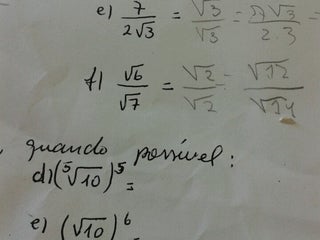 e) 7/2√3 = √3/√3 = 7√3/2.3 =
f) √6/√7 = √2/√2 = √12/√14
quando possível:
d) (⁵√10)⁵ =
e) (√10)⁶ =